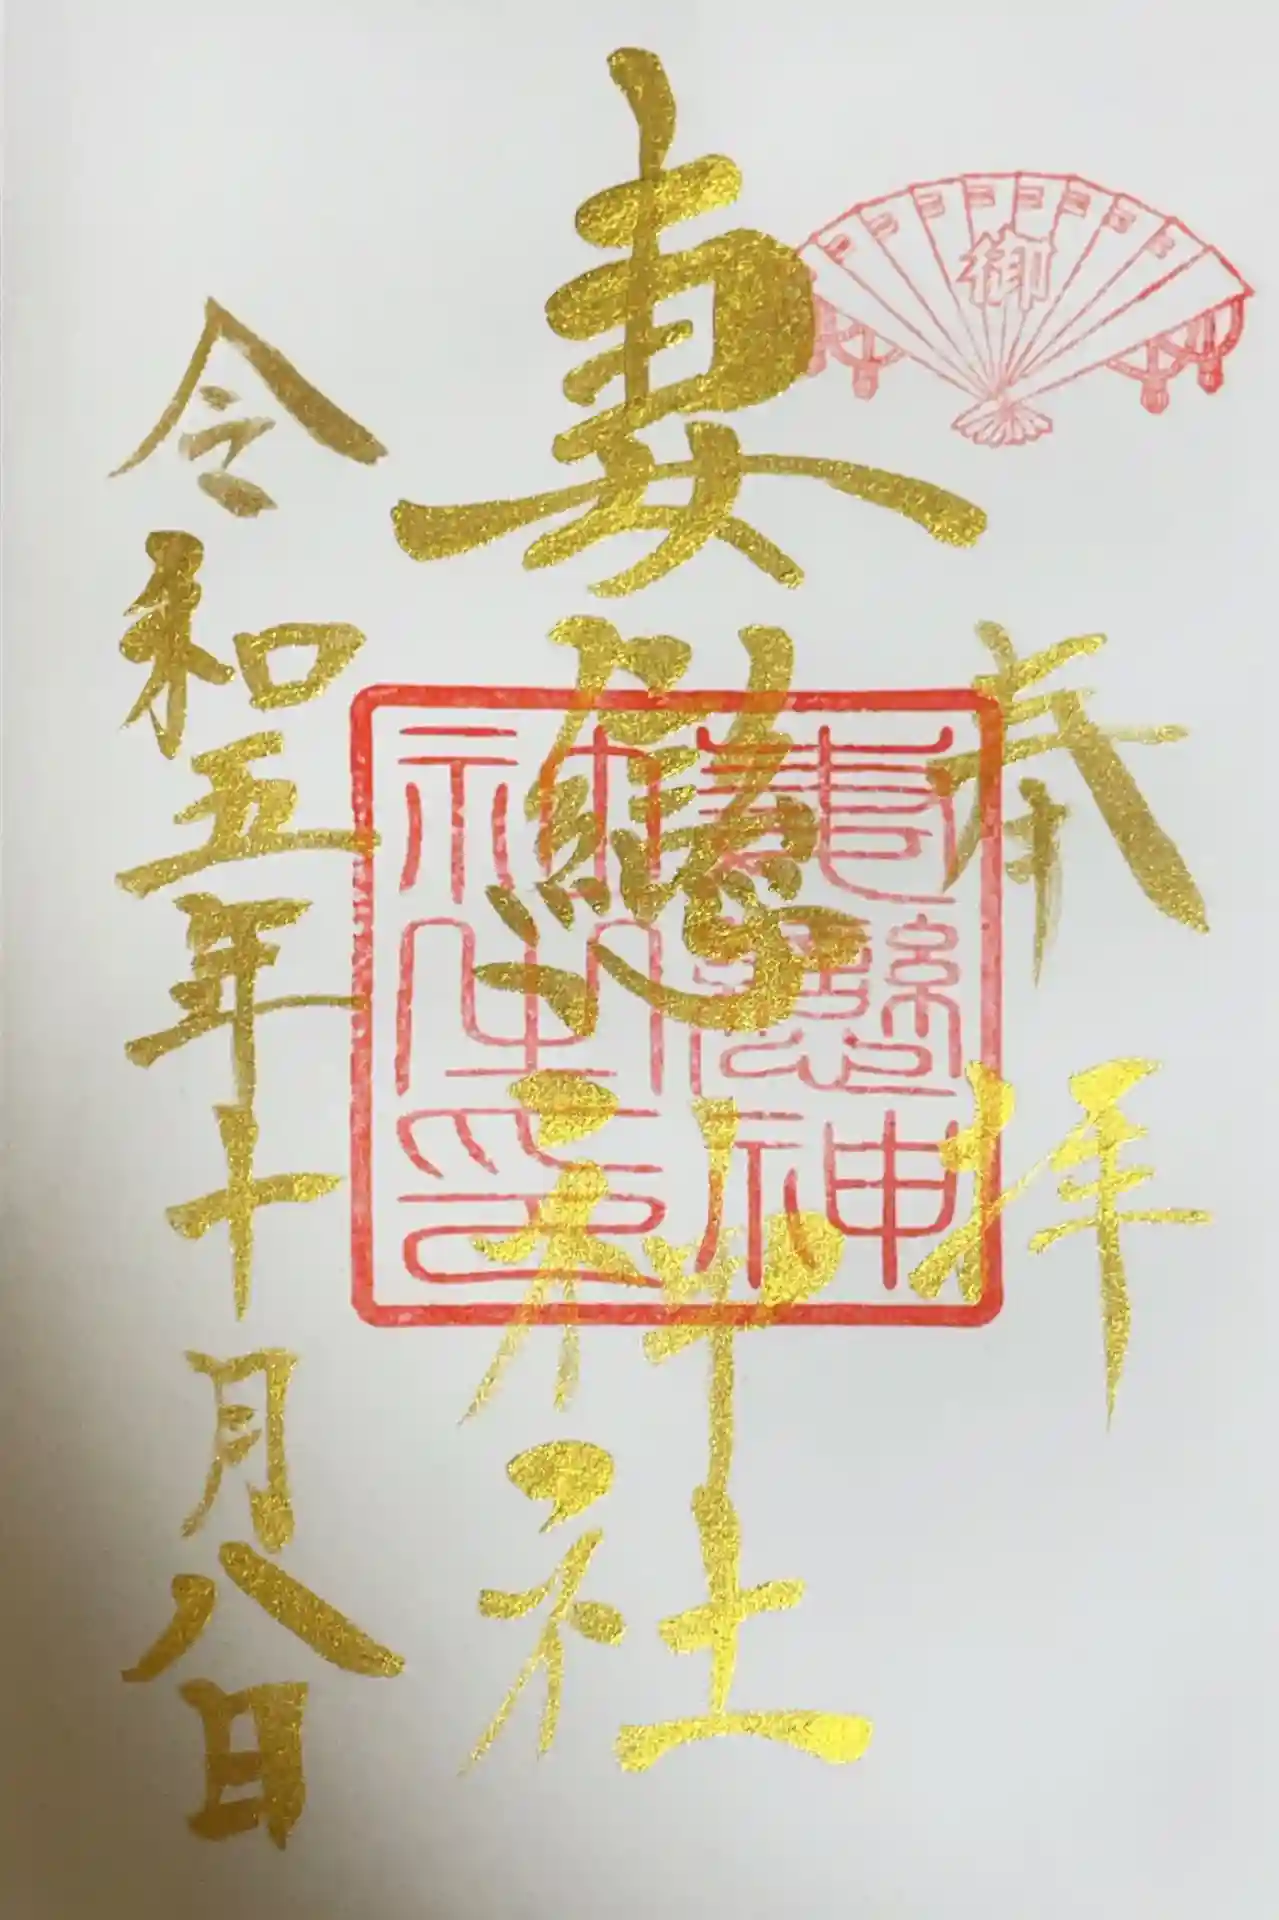 御
奉拝
妻戀神社
妻戀神
社之印
令和五年十月八日